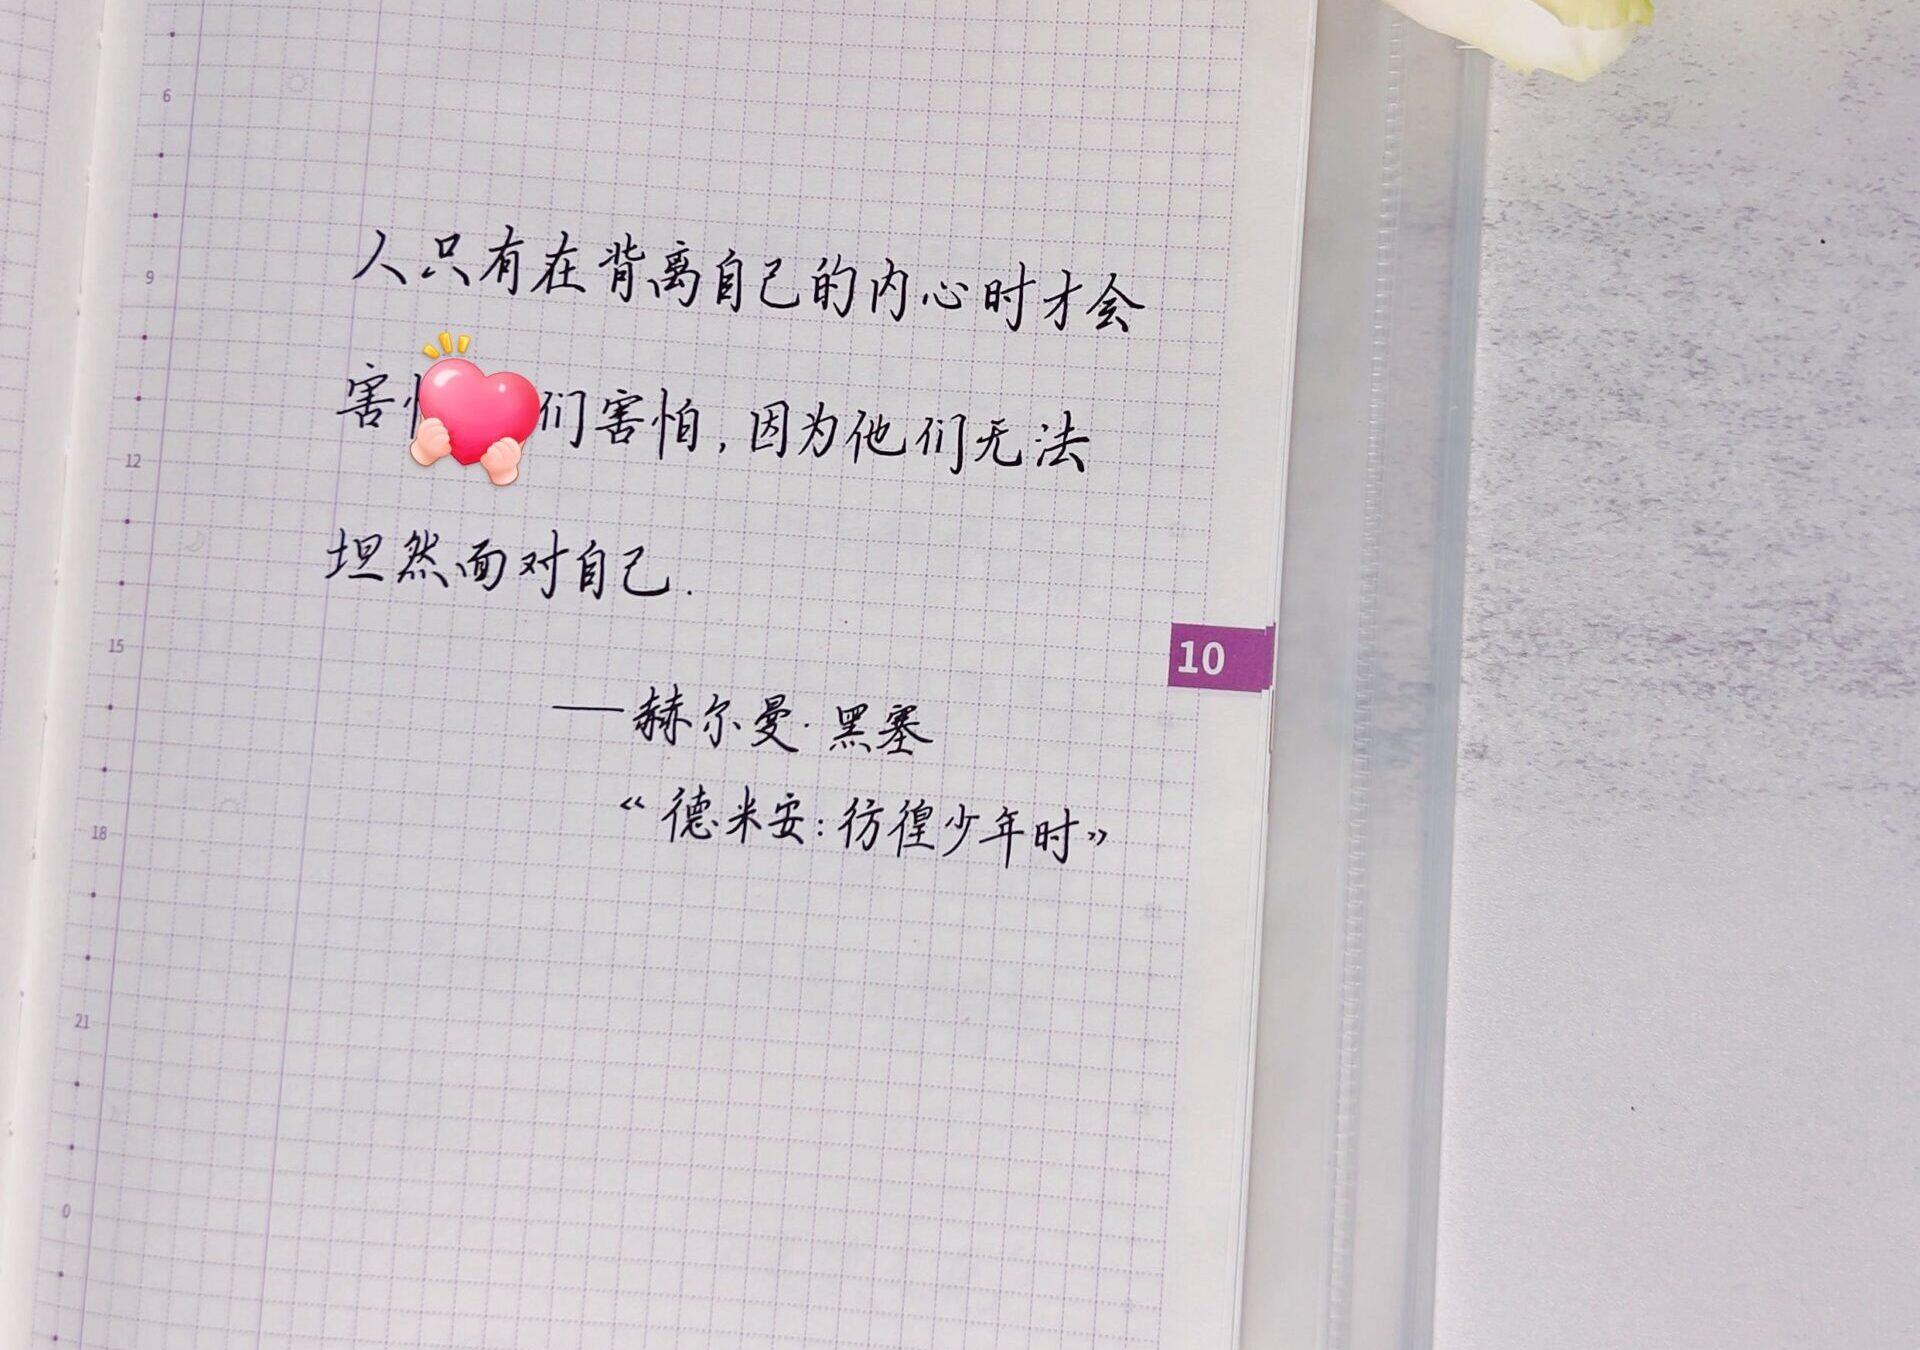 6
9
12
15
18
21
0
人只有在背离自己的内心时才会
害 们害怕,因为他们无法
坦然面对自己.
——赫尔曼·黑塞
《德米安:彷徨少年时》
10